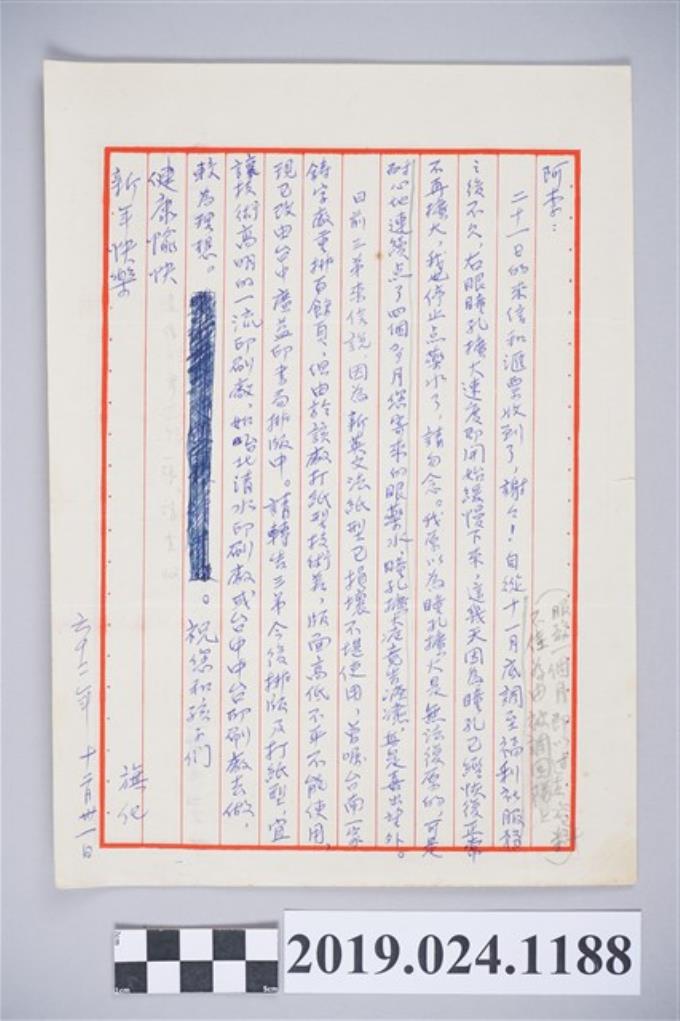 阿李：
二十一日的來信和滙票收到了，謝々！自從十一月底調至福利社服務
之後不久，右眼瞳孔擴大速度即開始緩慢下來，這幾天因為瞳孔已經恢復正常
不再擴大，我也停止点藥水了，請勿念。我原以為瞳孔擴大是無法復原的，可是
耐心地連續点了四個多月您寄來的眼藥水，瞳孔擴大症竟告痊癒，真是喜出望外。
日前三弟來信說，因為新英文法紙型已損壞不堪使用，曾囑台南一家
鑄字廠重排百餘頁，但由於該廠打紙型技術差，版面高低不平不能使用，
現已改由台中廣益印書局排版中。請轉告三弟今後排版及打紙型，宜
讓技術高明的一流印刷廠，如台北清水印刷廠或台中中台印刷廠去做，
較為理想。。祝您和孩子們
健康愉快
新年快樂
旗化
六十二年 十二月卅一日
服務一個月即以
不佳為由被調回
2019.024.1188